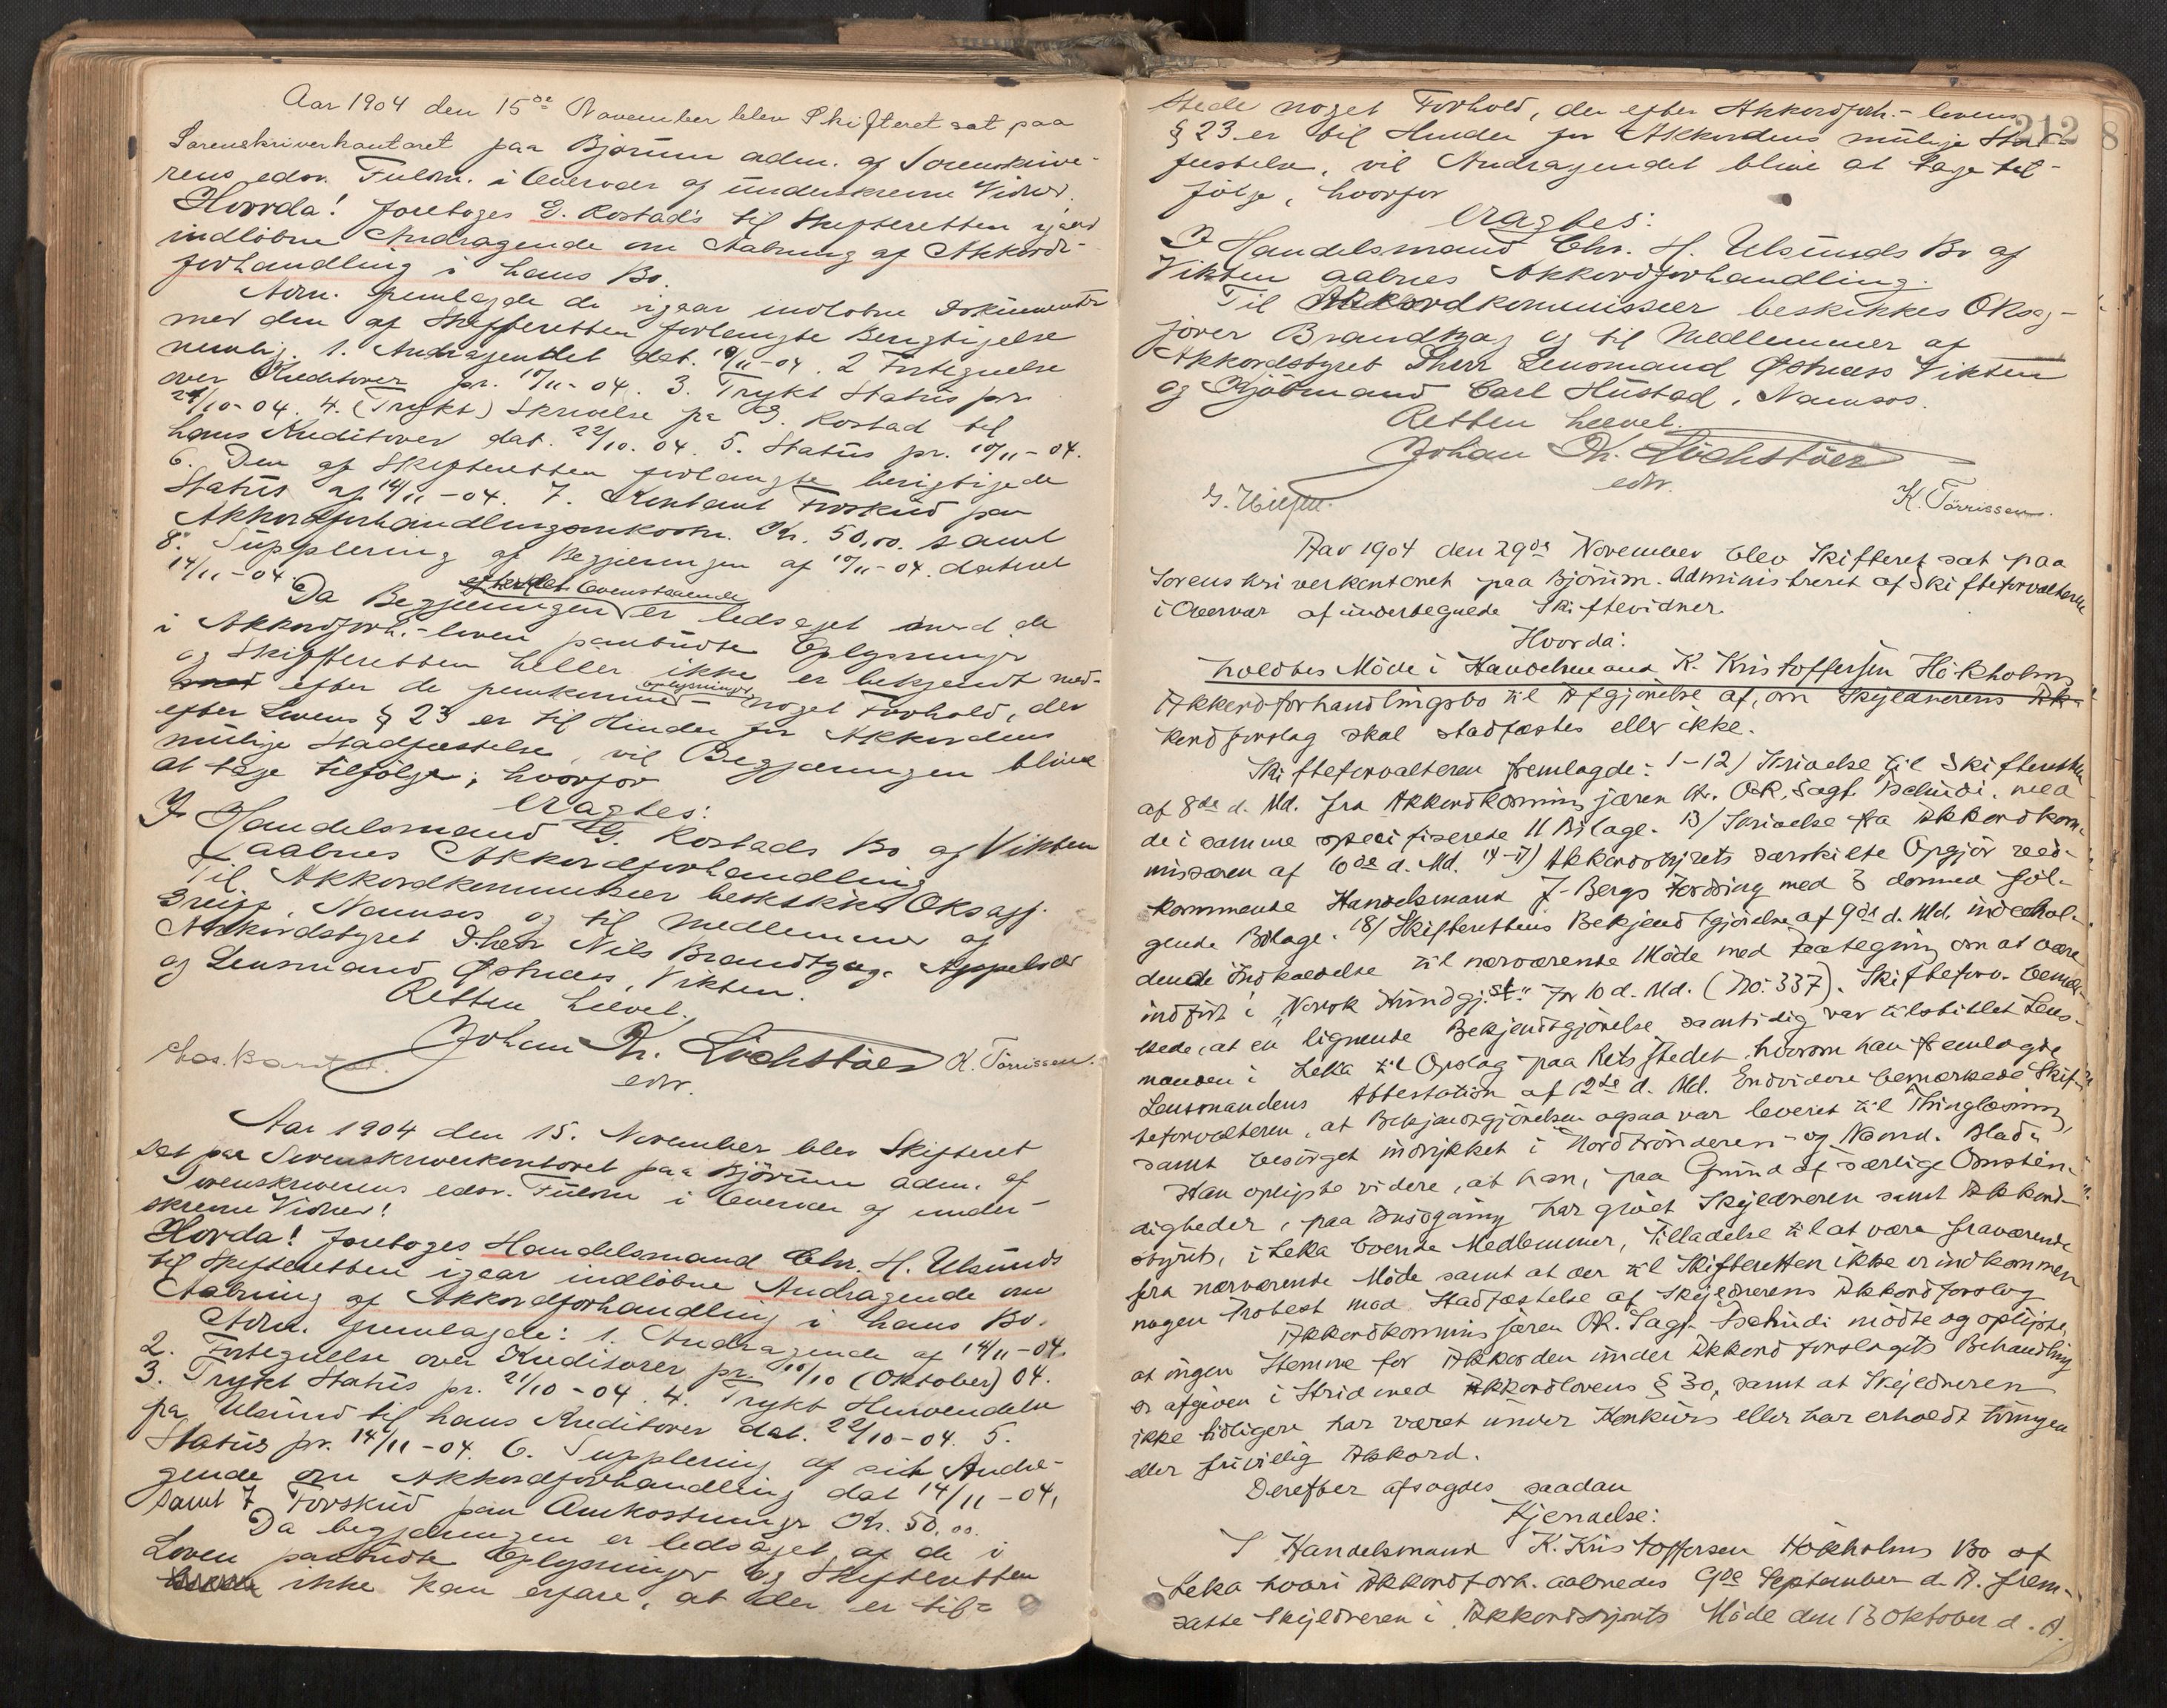 Aar 1904 den 15de November blev Skifteret sat paa
Sorenskriverkontoret paa Bjørum adm. af Sorenskrive-
rens edsv. Fuldm. i Overvær af underskrevne Vidner.
Hvorda! foretoges G. Rostad's til Skifteretten igaar
indløbne Andragende om Aabning af Akkord-
forhandling i hans Bo.
Adm. fremlagde de igaar indløbne Dokumenter
med den af Skifteretten forlangte Berigtigelse
nemlig. 1. Andragendet dat. 10/11-04. 2 Fortegnelse
over Kreditorer pr. 10/11-04. 3. Trykt Status pr.
21/10-04. 4. (Trykt) Skrivelse fra G. Rostad til
hans Kreditorer dat. 22/10. 04. 5. Status pr. 10/11-04.
6. Den af Skifteretten forlangte berigtigede
Status af 14/11-04. 7. Kontant Forskud paa
Akkordforhandlingsomkostn. Kr. 50,00. samt
8. Supplering af Begjæringen af 10/11-04. dateret
14/11-04.
Da Begjæringen er ledsaget med de
i Akkordforh.-loven paabudte Oplysninger
og Skifteretten heller ikke er bekjendt med
efter de fremkomne oplysninger noget Forhold, der
efter Lovens § 23 er til Hinder for Akkordens
mulige Stadfæstelse, vil Begjæringen blive
at tage tilfølge; hvorfor
eragtes:
I Handelsmand G. Rostads Bo af Vikten
aabnes Akkordforhandling.
Til Akkordkommissær beskikkes Oksagf.
Greigg, Namsos og til Medlemmer af
Akkordstyret Dherr Nils Brandtzæg, Appelvær
og Lensmand Østnæs, Vikten.
Retten hævet.
Johan Th. Lochstöer K. Tørrissen.
edsv.
Aar 1904 den 15. November blev Skifteret
sat paa Sorenskriverkontoret paa Bjørum adm. af
Sorenskriverens edsv. Fuldm i Overvær af under-
skrevne Vidner!
Hvorda! foretoges Handelsmand Chr. H. Ulsunds
til Skifteretten igaar indløbne Andragende om
Aabning af Akkordforhandling i hans Bo.
Adm. fremlagde: 1. Andragende af 14/11-04.
2. Fortegnelse over Kreditorer pr. 10/10 (Oktober) 04.
3. Trykt Status pr. 21/10-04. 4. Trykt Henvendelse
fra Ulsund til hans Kreditorer dat. 22/10-04. 5.
Status pr. 14/11-04. 6. Supplering af sit Andra-
gende om Akkordforhandling dat 14/11-04,
samt 7 Forskud paa Omkostninger Kr. 50,00.
Da begjæringen er ledsaget af de i
Loven paabudte Oplysninger og Skifteretten
ikke kan erfare, at der er til-
stede noget Forhold, der efter Akkordforh.-lovens
212 8
§ 23 er til Hinder for Akkordens mulige Stad-
fæstelse, vil Andragendet blive at tage til-
følge, hvorfor
eragtes:
I Handelsmand Chr. H. Ulsunds Bo af
Vikten aabnes Akkordforhandling.
Til Akkordkommissær beskikkes Oksag-
fører Brandtzæg og til Medlemmer af
Akkordstyret Dherr Lensmand Østnæs Vikten
og Kjøbmand Carl Hustad, Namsos.
Retten hævet.
Johan Th. Lochstöer
edsv.
K. Tørrissen.
Aar 1904 den 29de November blev Skifteret sat paa
Sorenskriverkontoret paa Bjørum. Administreret af Skifteforvalteren
i Overvær af undertegnede Skiftevidner.
Hvorda:
holdtes Møde i Handelsmand K. Kristoffersen Hökholms
Akkordforhandlingsbo til Afgjørelse af, om Skyldnerens Ak-
kordforslag skal stadfæstes eller ikke.
Skifteforvalteren fremlagde: 1-12) Skrivelse til Skifteretten
af 8de d. Md. fra Akkordkommissæren Hr. OR. Sagf. Tschudi, med
de i samme specifiserede 11 Bilage. 13) Skrivelse fra Akkordkom-
missæren af 10de d. Md. 14-17) Akkordstyrets særskilte Opgjør ved-
kommende Handelsmand J. Bergs Fordring med 3 dermed føl-
gende Bilage. 18) Skifterettens Bekjendtgjørelse af 9de d. Md. indehol-
dende Indkaldelse til nærværende Møde med Paategning om at være
indført i "Norsk Kundgj.st." for 10 d. Md. (No. 337). Skifteforv. bemær-
kede, at en lignende Bekjendtgjørelse samtidig var tilstillet Lens-
manden i Leka til Opslag paa Retsstedet, hvorom han fremlagde
Lensmandens Attestation af 12te d. Md. Endvidere bemærkede Skif-
teforvalteren, at Bekjendtgjørelsen ogsaa var leveret til Thinglæsning,
samt besørget indrykket i "Nordtrønderen" og Namd. Blad.
Han oplyste videre, at han, paa Grund af særlige Omstæn-
digheder, paa Ansøgning har givet Skyldneren samt Akkord-
styrets, i Leka boende Medlemmer, Tilladelse til at være fraværende
fra nærværende Møde samt at der til Skifteretten ikke er indkommen
nogen Protest mod Stadfæstelse af Skyldnerens Akkordforslag
Akkordkommissæren OR. Sagf. Tschudi mødte og oplyste,
at ingen Stemme for Akkorden under Akkordforslagets Behandling
er afgiven i Strid med Akkordlovens § 30, samt at Skyldneren
ikke tidligere har været under Konkurs eller har erholdt tvungen
eller frivillig Akkord.
Derefter afsagdes saadan
Kjendelse:
I Handelsmand K. Kristoffersen Hökholms Bo af
Leka hvori Akkordforh. aabnedes 9de September d. A. frem-
satte Skyldneren i Akkordstyrets Møde den 13 Oktober d. A.